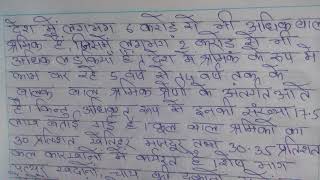 देश में लगभग 5 करोड़ से भी अधिक बाल
श्रमिक है जिसमें लगभग 2 करोड़ से भी
अधिक लड़कियां हैं। देश में श्रमिक के रूप में
काम कर रहे 5 वर्ष से 14 वर्ष तक के
बालक बाल श्रमिक श्रेणी के अन्तर्गत आते
है। किन्तु अधिकृत रूप से इनकी संख्या 17.5
लाख बताई गई है। कुल बाल श्रमिकों का
30 प्रतिशत खेतिहर मजदूर तथा 30-35 प्रतिशत
कल कारखानों में कार्यरत है। शेष भाग
पत्थर खदानों, चाय की